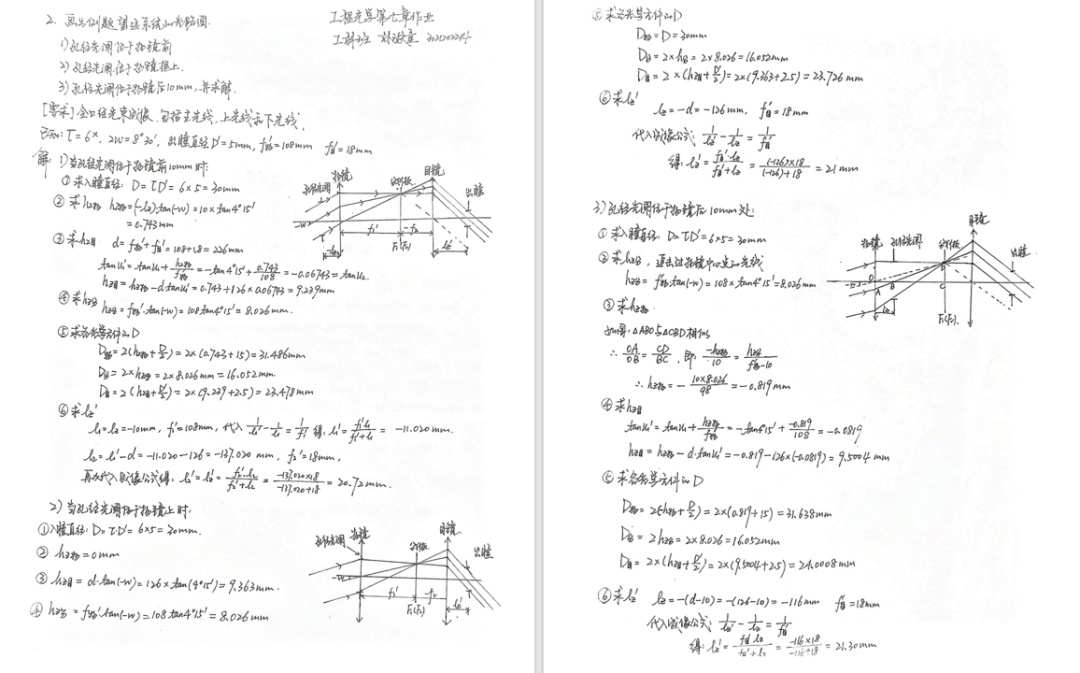 2. 画出例题望远系统的光路图.
1) 孔径光阑位于物镜前
2) 孔径光阑位于物镜框上.
3) 孔径光阑位于物镜后10mm, 并求解.
工程光学第七章作业
[要求] 全口径光束成像, 包括主光线, 上光线和下光线.
已知: Γ=6×, 2W=8°30′, 出瞳直径D′=5mm, f物′=108mm f目′=18mm
解: 1) 当孔径光阑位于物镜前10mm时:
① 求入瞳直径: D=ΓD′=6×5=30mm
② 求hz物 hz物=(-lz)·tan(-w)=10×tan4°15′
=0.743mm
③ 求hz目 d=f物′+f目′=108+18=226mm
tanu1′=tanu1+hz物/f物′=-tan4°15′+0.743/108=-0.06743=tanu2.
hz目=hz物-d·tanu1′=0.743+126×0.06743=9.239mm
④ 求hz分 hz分=f物′·tan(-w)=108tan4°15′=8.026mm.
⑤ 求各光学元件的D
D物=2(hz物+D/2)=2×(0.743+15)=31.486mm
D分=2×hz分=2×8.026mm=16.052mm
D目=2(hz目+D′/2)=2×(9.239+2.5)=23.478mm
⑥ 求lz′
l1=lz=-10mm, f1′=108mm, 代入 1/l1′-1/l1=1/f1′ 得: l1′=f1′l1/(f1′+l1)=-11.020mm.
l2=l1′-d=-11.020-126=-137.020mm, f2′=18mm,
再次代入成像公式得, l2′=lz′=f2′·l2/(f2′+l2)=-137.020×18/(-137.020+18)=20.72mm.
孔径光阑 物镜 分划板 目镜 出瞳
-w f1′ -f2 -lz lz′ F1′(F2)
2) 当孔径光阑位于物镜上时:
① 入瞳直径: D=ΓD′=6×5=30mm.
② hz物=0mm
③ hz目=d·tan(-w)=126×tan(4°15′)=9.363mm.
④ hz分=f物′·tan(-w)=108tan4°15′=8.026mm
孔径光阑 物镜 分划板 目镜 出瞳
-w f1′ -f2 lz′ F1′(F2)
⑤ 求各光学元件的D
D物=D=30mm
D分=2×hz分=2×8.026=16.052mm
D目=2×(hz目+D′/2)=2×(9.363+2.5)=23.726mm
⑥ 求lz′ lz=-d=-126mm, f目′=18mm
代入成像公式: 1/lz′-1/lz=1/f目′
得: lz′=f目′·lz/(f目′+lz)=(-126)×18/((-126)+18)=21mm
3) 孔径光阑位于物镜后10mm处:
① 求入瞳直径 D=ΓD′=6×5=30mm
② 求hz分, 通过物镜中心的光线
hz分=f物′·tan(-w)=108×tan4°15′=8.026mm
③ 求hz物.
如图: △ABO与△CBD相似
∴ OA/OB=CD/BC, 即: -hz物/10=hz分/(f物′-10)
∴ hz物=-10×8.026/98=-0.819mm
物镜 孔径光阑 分划板 目镜 出瞳
-w O A B C D lz F1′(F2)
④ 求hz目
tanu1′=tanu1+hz物/f物′=-tan4°15′+-0.819/108=-0.0819
hz目=hz物-d·tanu1′=-0.819-126×(-0.0819)=9.5004mm
⑤ 求各光学元件的D
D物=2(-hz物+D/2)=2×(0.819+15)=31.638mm
D分=2hz分=2×8.026=16.052mm
D目=2×(hz目+D′/2)=2×(9.5004+2.5)=24.0008mm
⑥ 求lz′ lz=-(d-10)=-(126-10)=-116mm f目′=18mm
代入成像公式: 1/lz′-1/lz=1/f目′
得: lz′=f目′lz/(f目′+lz)=-116×18/(-116+18)=21.30mm